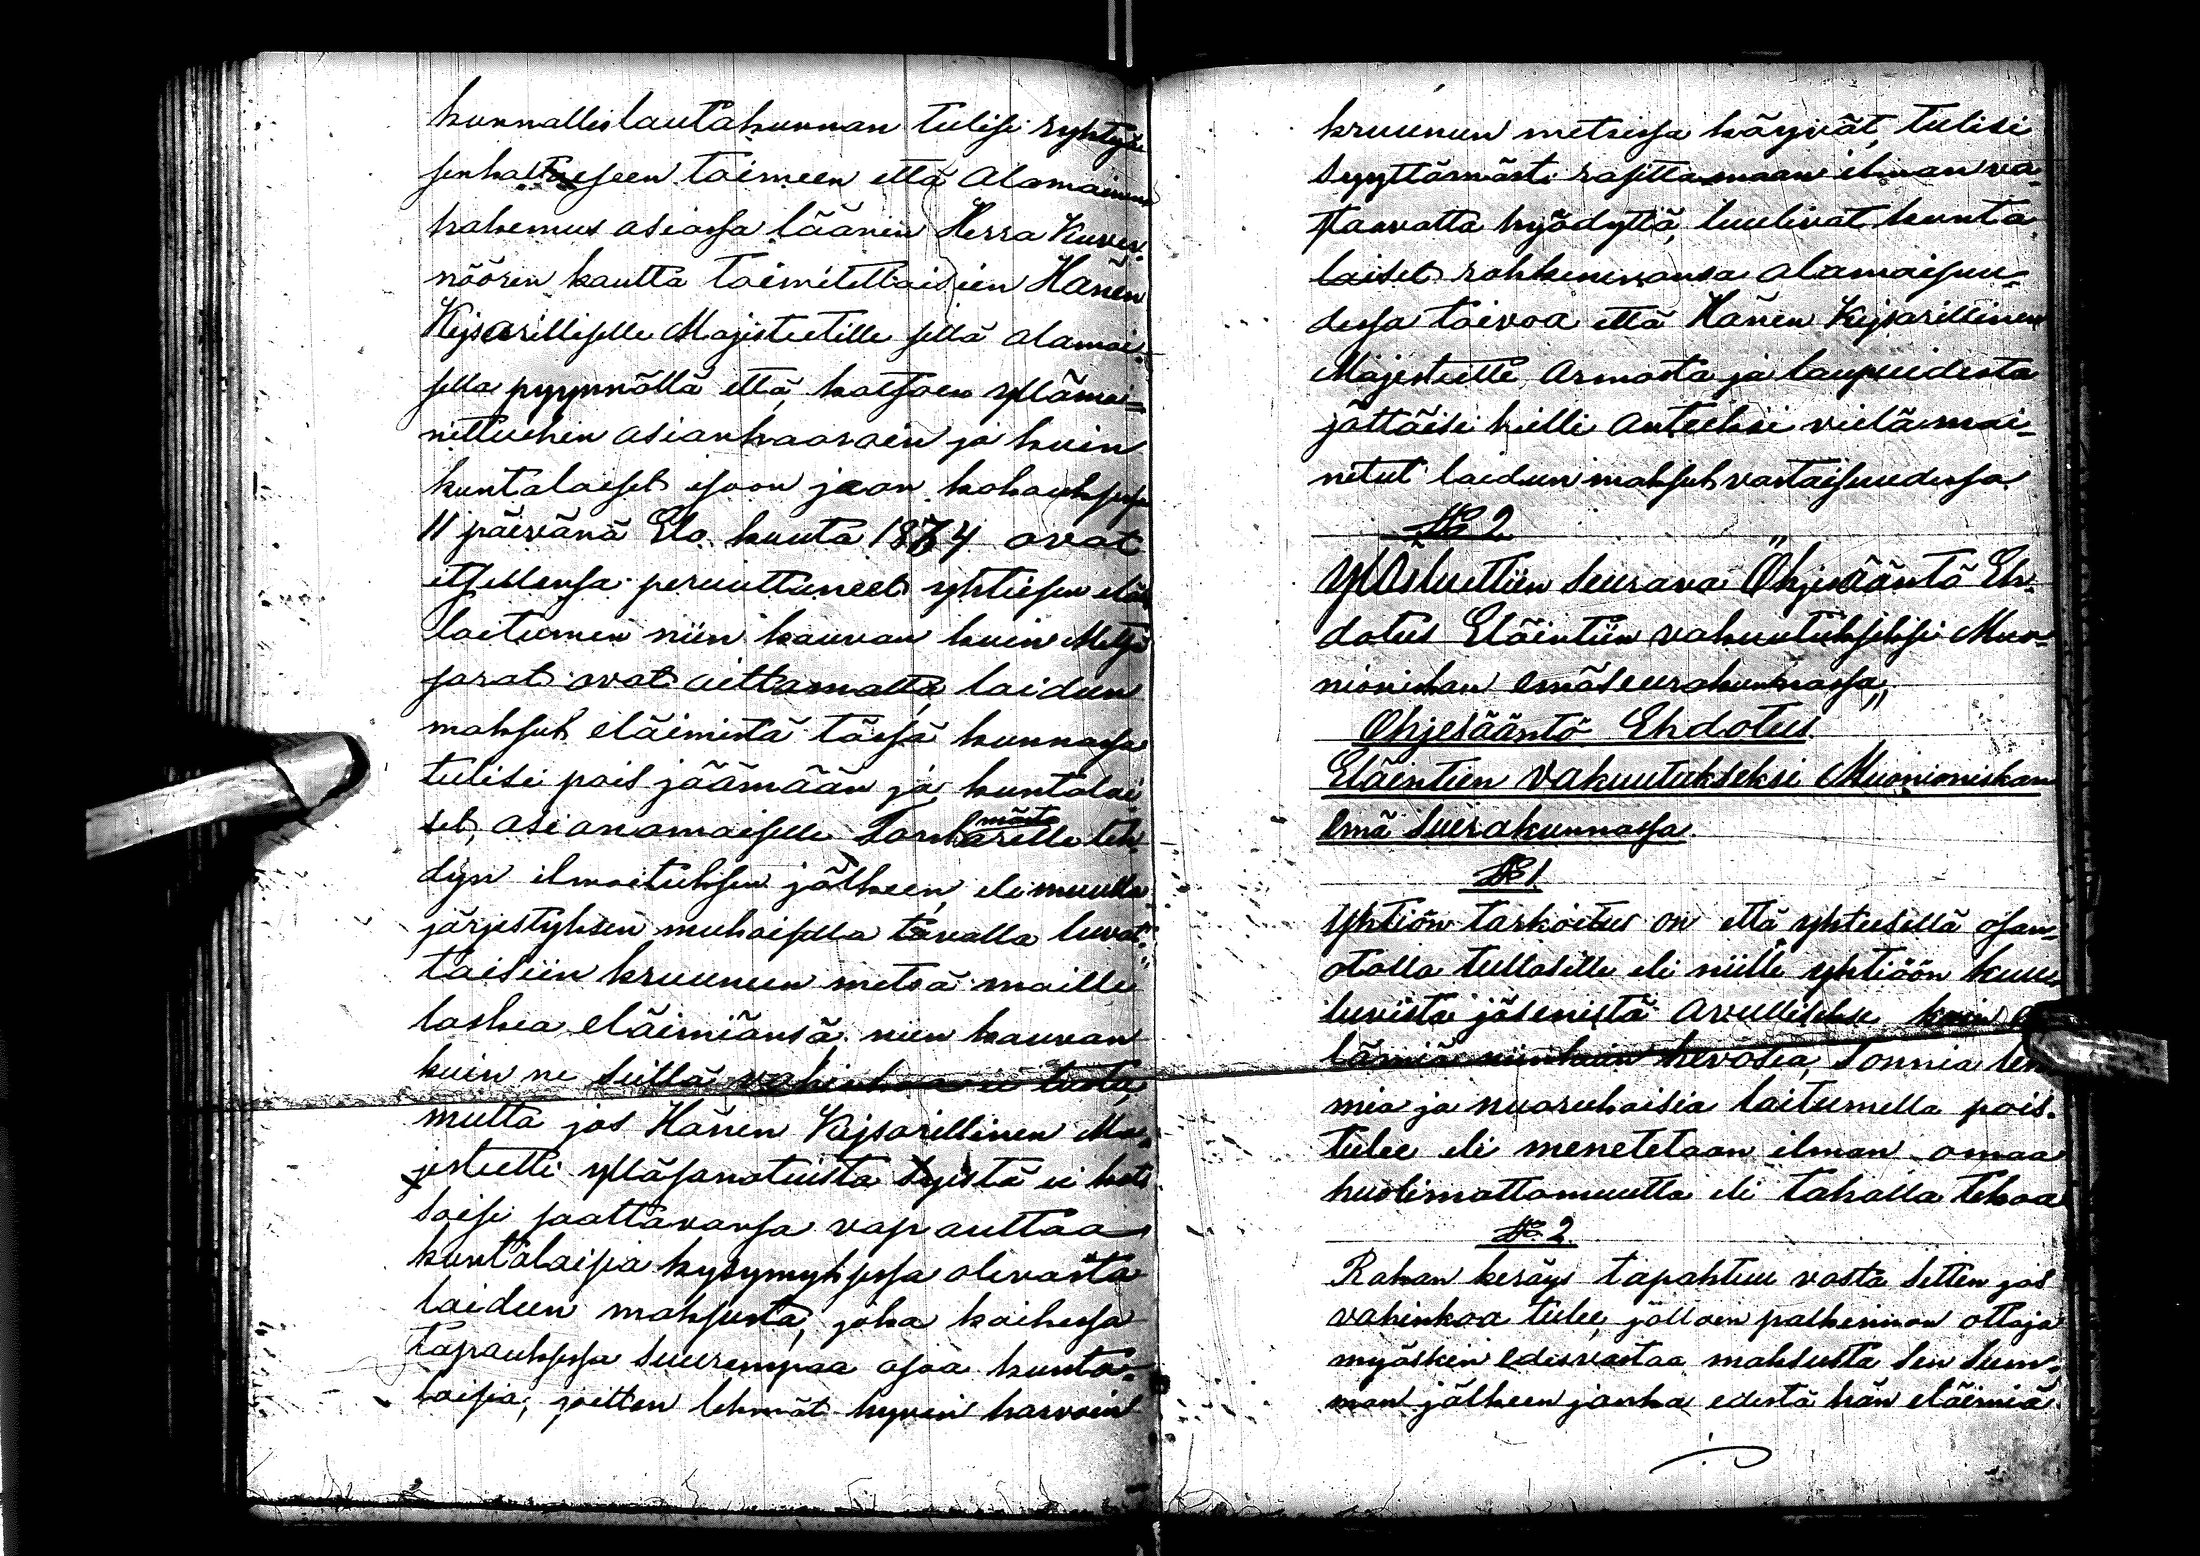 kunnallislautakunnan tulisi ryhtyä
senkaltaeseen toimeen että Alamainen
hakemus asiassa läänin Herra Kuver-
nöörin kautta toimitettaisiin Hänen
Kejsarilliselle Majesteetille sillä alamai-
sella pyynnöllä että, katsoen yllämai-
nittuihin asianhaaroin ja kuin
kuntalaiset isoon jaon kokouksessa
11 päivänä Elo kuuta 1874 ovat
itsellensa peruuttaneet yhteisen
laitumen niin kauvan kuin Metsä
sarat ovat aittamatta, laidun
maksut eläimistä tässä kunnassa
tulisi pois jäämään ja kuntalai
set, asianomaiselle Forstmästarille teh-
dyn ilmoituksen jälkeen, eli muulla
järjestyksen mukaisella tavalla luvat-
taisiin kruunun metsä maille
laskea eläimiänsä niin kauvan
kuin ne siillä vahinkoa ei tuota,
mutta jos Hänen Kejsarillinen Ma-
jesteetti ylläsanotuista syistä ei kat
soisi saattavansa vapauttaa
kuntalaisia kysymyksessa olevasta
laidun maksusta, joka kaikessa
tapauksessa suurempaa osaa kunta-
laisia, joitten lehmät hyvin harvoin
kruunun metsissa käyvät, tulisi
syyttömästi rasittamaan ilman va-
staavatta hyödyttä, luulivat kunta-
laiset rohkenevansa alamaisuu-
dessa toivoa että Hänen Kejsarillinen
Majesteetti Armosta ja laupiudesta
jättäisi killi anteeksi vielä mai-
nitut laidun maksut vastaisuudessa.
№ 2
Ylösluettiin seurava "Ohjesääntö Eh-
dotus Eläintiin vakuutukseksi Muo-
nioniskan emäseurakunnassa"
Ohjesääntö Ehdotus
Eläintien Vakuutukseksi Muonioniskan
emä seurakunnassa.
№ 1.
Yhtiön tarkoitus on että yhteisellä osan-
otolla tullasille eli niille yhtiöön kuu
luvista jäsenistä avulliseksi kuin e
läimiä niinkuin hevosia, sonnia leh
miä ja nuorukaisia laitumella pois-
tulee eli menetetaan ilman omaa
huolimattomuutta eli tahalla tekoa
№ 2.
Rahan keräys tapahtuu vasta sitten jos
vahinkoa tulee, jolloin palkinnon ottaja
myöskin edesvastaa maksusta sen sum-
man jälkeen jonka edestä hän eläimiä